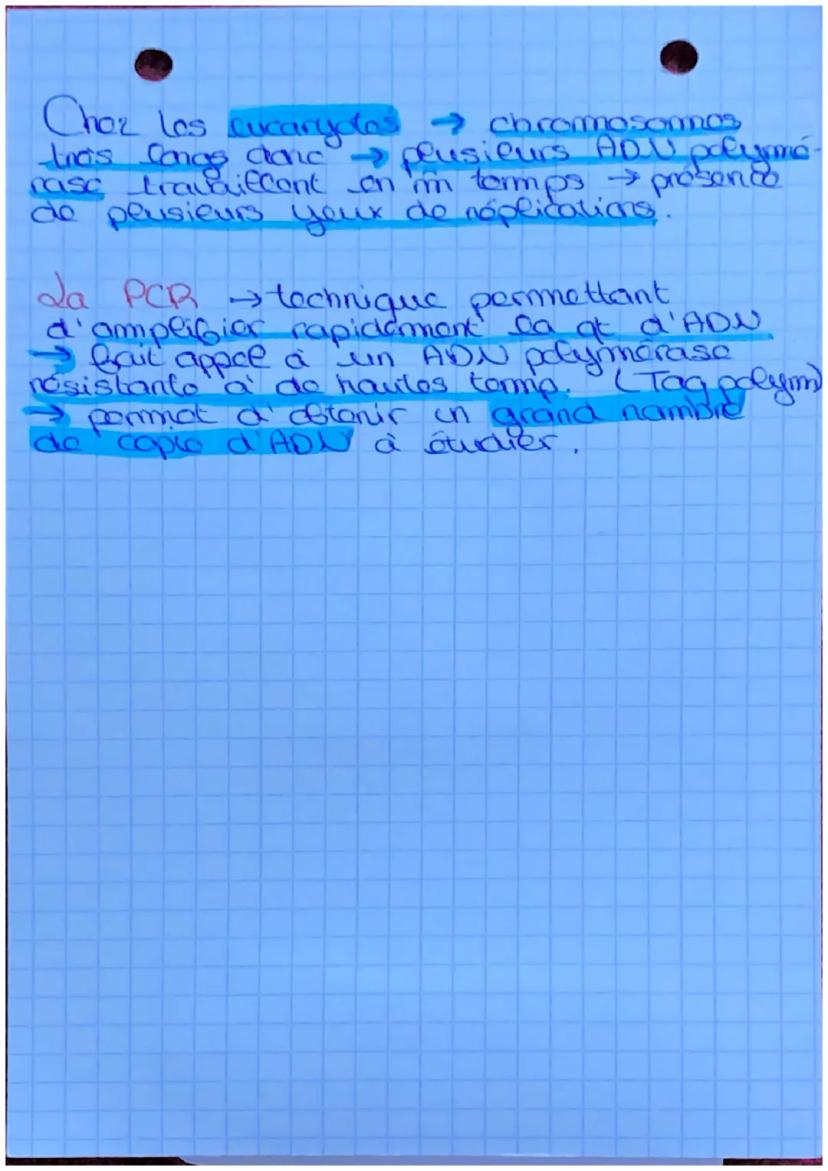 Chez les eucaryotes → chromosomnes
très longs donc → plusieurs ADN polymé-
rase travaillant en m̂ temps → présence
de plusieurs yeux de réplications.
La PCR → technique permettant
d'amplifier rapidement la qt d'ADN
→ fait appel à un ADN polymérase
résistante à de hautes temp. (Taq polym)
→ permet d'obtenir un grand nombre
de copie d'ADN à étudier.